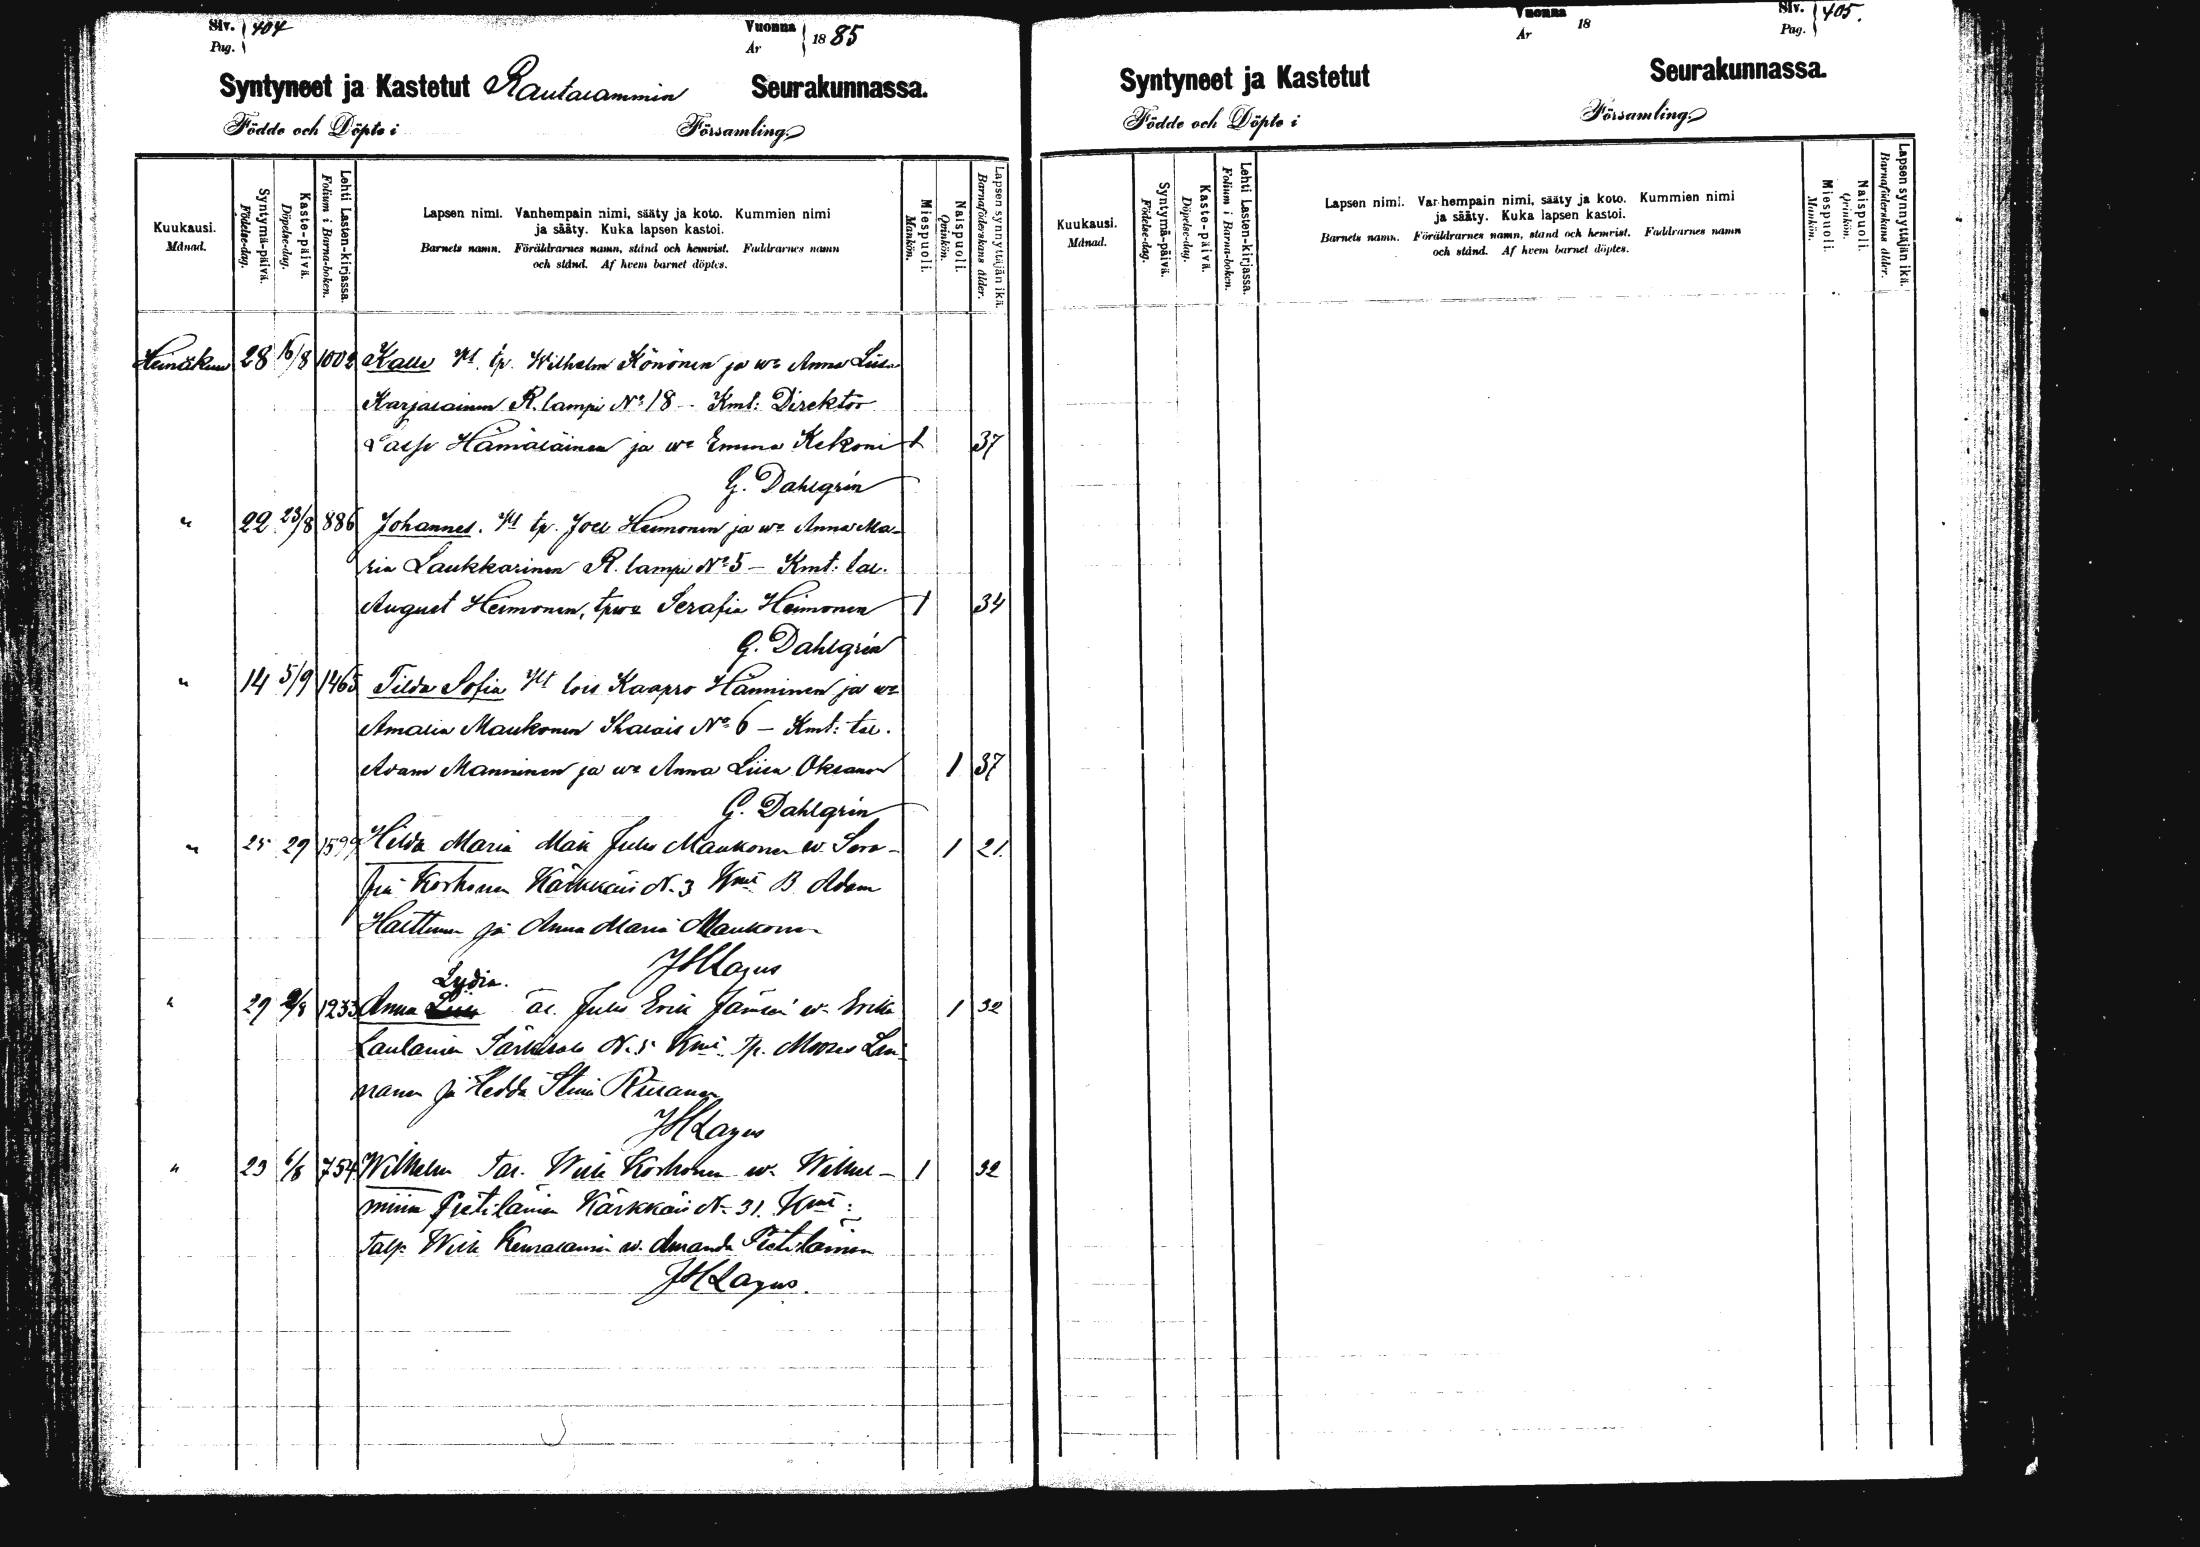 Siv. 404
Pag.
Vuonna 1885
Ar
Syntyneet ja Kastetut Rautalammin Seurakunnassa.
Födde och Döpte i Församling.
Kuukausi.
Månad.
Syntymä-päivä.
Födelse-dag.
Kaste-päivä.
Döpelse-dag.
Lehti Lasten-kirjassa.
Folium i Barna-boken.
Lapsen nimi. Vanhempain nimi, sääty ja koto. Kummien nimi
ja sääty. Kuka lapsen kastoi.
Barnets namn. Föräldrarnes namn, stånd och hemvist. Faddrarnes namn
och stånd. Af hvem barnet döptes.
Miespuoli.
Mankön.
Naispuoli.
Qvinkön.
Lapsen synnyttäjän ikä.
Barnaföderskans ålder.
Heinäkuu 28 16/8 1002 Kalle tp. Wilhelm Könönen ja wo Anna Liisa
Karjalainen R.lampi No 18 - Kmt: Direktör
Lasse Hämäläinen ja wo Emma Kekoni 1 37
G. Dahlgrén
" 22 23/8 886 Johannes. tp. Joel Heimonen ja wo Anna Ma-
ria Laukkarinen R.lampi No 5 - Kmt: tal.
August Heimonen, tpwo Serafia Heimonen 1 34
G. Dahlgrén
" 14 5/9 1465 Tilda Sofia lois Kaapro Hänninen ja wo
Amalia Maukonen No 6 - Kmt: tal.
Adam Manninen ja wo Anna Liisa Oksanen 1 37
G. Dahlgrén
" 25 29 1599 Hilda Maria Mäk Juho Maukonen w. Sera- 1 21.
fia Korhonen Kärkkäis N. 3 Kmt B Adam
Halttunen ja Anna Maria Maukonen
JHLagus
Lydia.
" 29 2/8 1233 Anna Liisa Juho Erik Jämsén w. Erika 1 32
Laulainen Särkisalo N. 5 Kmt. Tp. Mooses Lou-
nanen ja Hedda Stina Riisanen
JHLagus
" 23 6/8 754 Wilhelm Tal. Korhonen w. Wilhel- 1 32
miina Pietiläinen Kärkkäis N. 31. Kmt:
Talp. w. Amanda Pietiläinen
JHLagus.
Vuonna 18
Ar
Siv. 405.
Pag.
Syntyneet ja Kastetut Seurakunnassa.
Födde och Döpte i Församling.
Kuukausi.
Månad.
Syntymä-päivä.
Födelse-dag.
Kaste-päivä.
Döpelse-dag.
Lehti Lasten-kirjassa.
Folium i Barna-boken.
Lapsen nimi. Vanhempain nimi, sääty ja koto. Kummien nimi
ja sääty. Kuka lapsen kastoi.
Barnets namn. Föräldrarnes namn, stand och hemvist. Faddrarnes namn
och stånd. Af hvem barnet döptes.
Miespuoli.
Mankön.
Naispuoli.
Qvinkön.
Lapsen synnyttäjän ikä.
Barnaföderskans ålder.